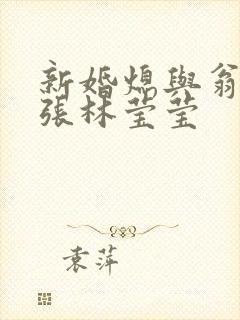 新婚熄與翁
張林莹莹
袁萍